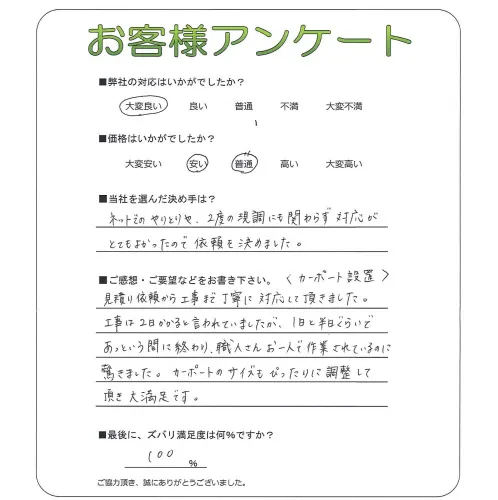 お客様アンケート
■弊社の対応はいかがでしたか?
大変良い 良い 普通 不満 大変不満
■価格はいかがでしたか?
大変安い 安い 普通 高い 大変高い
■当社を選んだ決め手は?
ネットでのやりとりや、2度の現調にも関わらず対応が
とてもよかったので依頼を決めました。
■ご感想・ご要望などをお書き下さい。〈カーポート設置〉
見積り依頼から工事まで丁寧に対応して頂きました。
工事は2日かかると言われていましたが、1日と半日ぐらいで
あっという間に終わり、職人さんお一人で作業されているのに
驚きました。カーポートのサイズもぴったりに調整して
頂き大満足です。
■最後に、ズバリ満足度は何%ですか?
100 %
ご協力頂き、誠にありがとうございました。